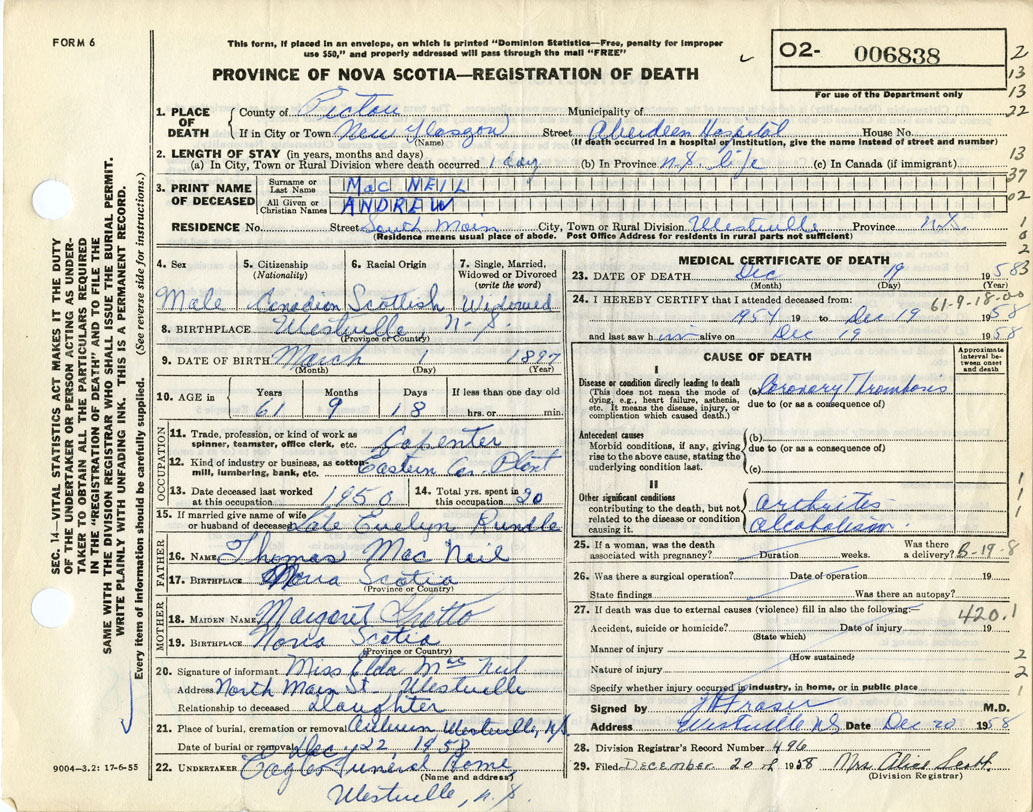 FORM 6
This form, if placed in an envelope, on which is printed "Dominion Statistics—Free, penalty for improper
use $50," and properly addressed will pass through the mail "FREE"
PROVINCE OF NOVA SCOTIA—REGISTRATION OF DEATH
O2- 006838
For use of the Department only
2
13
13
22
13
37
02
1
0
2
SEC. 14—VITAL STATISTICS ACT MAKES IT THE DUTY
OF THE UNDERTAKER OR PERSON ACTING AS UNDER-
TAKER TO OBTAIN ALL THE PARTICULARS REQUIRED
IN THE "REGISTRATION OF DEATH" AND TO FILE THE
SAME WITH THE DIVISION REGISTRAR WHO SHALL ISSUE THE BURIAL PERMIT.
WRITE PLAINLY WITH UNFADING INK. THIS IS A PERMANENT RECORD.
Every item of information should be carefully supplied. (See reverse side for instructions.)
1. PLACE OF DEATH
County of Pictou Municipality of
If in City or Town New Glasgow Street Aberdeen Hospital House No.
(Name) (If death occurred in a hospital or institution, give the name instead of street and number)
2. LENGTH OF STAY (in years, months and days)
(a) In City, Town or Rural Division where death occurred 1 day (b) In Province N.S. life (c) In Canada (if immigrant)
3. PRINT NAME OF DECEASED
Surname or Last Name MacNEIL
All Given or Christian Names ANDREW
RESIDENCE No. Street South Main City, Town or Rural Division Westville Province N.S.
(Residence means usual place of abode. Post Office Address for residents in rural parts not sufficient)
4. Sex 5. Citizenship (Nationality) 6. Racial Origin 7. Single, Married, Widowed or Divorced (write the word)
Male Canadian Scottish Widowed
8. BIRTHPLACE Westville, N.S.
(Province or Country)
9. DATE OF BIRTH March 1 1897
(Month) (Day) (Year)
10. AGE in Years Months Days If less than one day
61 9 18 hrs. or min.
OCCUPATION
11. Trade, profession, or kind of work as spinner, teamster, office clerk, etc. Capenter
12. Kind of industry or business, as cotton mill, lumbering, bank, etc. Eastern Car Plant
13. Date deceased last worked at this occupation 1950 14. Total yrs. spent in this occupation 20
15. If married give name of wife or husband of deceased Late Evelyn Rundle
FATHER
16. NAME Thomas MacNeil
17. BIRTHPLACE Nova Scotia
(Province or Country)
MOTHER
18. MAIDEN NAME Margaret
19. BIRTHPLACE Nova Scotia
(Province or Country)
20. Signature of informant Miss Elda MacNeil
Address North Main St. Westville
Relationship to deceased Daughter
21. Place of burial, cremation or removal Auburn Westville, N.S.
Date of burial or removal Dec 22, 1958
22. UNDERTAKER Eagles Funeral Home,
(Name and address)
Westville, N.S.
9004-3.2: 17-6-55
MEDICAL CERTIFICATE OF DEATH
23. DATE OF DEATH Dec 19 1958
(Month) (Day) (Year)
3
24. I HEREBY CERTIFY that I attended deceased from: 61-9-18-00
1954 19 to Dec 19 1958
and last saw him alive on Dec 19 1958
CAUSE OF DEATH
Approximate interval between onset and death
I
Disease or condition directly leading to death (a) Coronary Thrombosis
(This does not mean the mode of dying, e.g., heart failure, asthenia, etc. It means the disease, injury, or complication which caused death.)
due to (or as a consequence of)
Antecedent causes (b)
Morbid conditions, if any, giving rise to the above cause, stating the underlying condition last.
due to (or as a consequence of)
(c)
II
Other significant conditions contributing to the death, but not related to the disease or condition causing it.
arthrites
alcoholism
1
1
1
25. If a woman, was the death associated with pregnancy? Duration weeks. Was there a delivery? B-19-8
26. Was there a surgical operation? Date of operation 19
State findings Was there an autopsy?
27. If death was due to external causes (violence) fill in also the following:
420.1
Accident, suicide or homicide? Date of injury 19
(State which)
Manner of injury 2
(How sustained)
Nature of injury 2
Specify whether injury occurred in industry, in home, or in public place 1
Signed by Fraser M.D.
Address Westville N.S. Date Dec 20 1958
28. Division Registrar's Record Number 496
29. Filed December 20 1958 Mrs Alice Scott.
(Division Registrar)